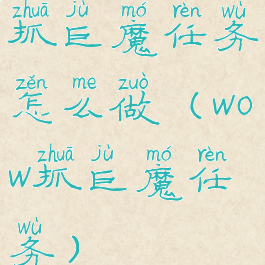 zhuā jù mó rèn wù
抓巨魔任务
zěn me zuò
怎么做(wo
zhuā jù mó rèn
w抓巨魔任
wù
务)